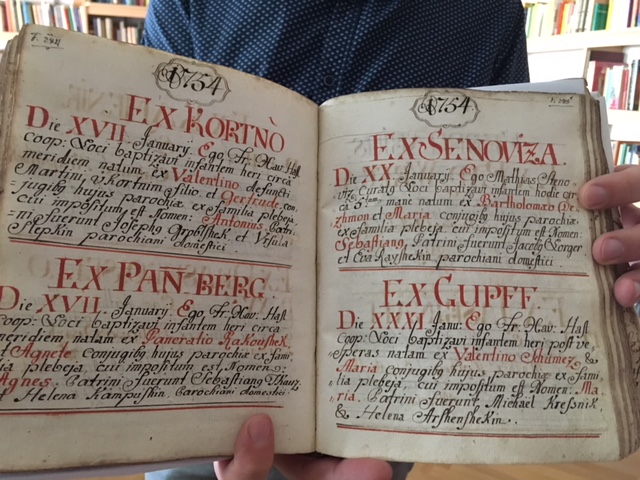 1754
EX KORTNÒ
Die XVII. Januarij. Ego Fr. Xav: Hast
coop: Loci baptizavi infantem heri circa
meridiem natum ex Valentino defuncti
Martini, à Kortnim filio et Gertrude con-
jugibus hujus parochiæ ex familia plebeja,
cui impositum est Nomen: Antonius. Patri-
ni fuerunt Josephg et Ursula
Slepkin parochiani domestici.
EX PAN BERG
Die XVII. Januarij. Ego Fr. Xav: Hast
Coop: Loci baptizavi infantem heri circa
meridiem natam ex Pancratio Rakoushek,
et Agnete conjugibg hujus parochiæ ex fami-
lia plebeja, cui impositum est Nomen:
Agnes. Patrini fuerunt Sebastiang
& Helena Kampushin, parochiani domestici.
1754
EX SENOVIZA
Die XX. Januarij. Ego Mathias Steno-
vitz Curatg Loci baptizavi infantem hodie cir-
ca mane natum ex Bartholomæo
et Maria conjugibg hujus parochiæ
ex familia plebeja, cui impositum est Nomen:
Sebastiang, Patrini fuerunt Jacobg Gorger
et Eva Kayshekin parochiani domestici.
EX GUPFF.
Die XXXI. Janu: Ego Fr. Xav: Hast
Coop: Loci baptizavi infantem heri post ve-
speras natam ex Valentino Schumeze &
Maria conjugibg hujus parochiæ ex fami-
lia plebeja, cui impositum est Nomen: Ma-
ria. Patrini fuerunt Michaël Kreßnik,
& Helena Arshenshekin.